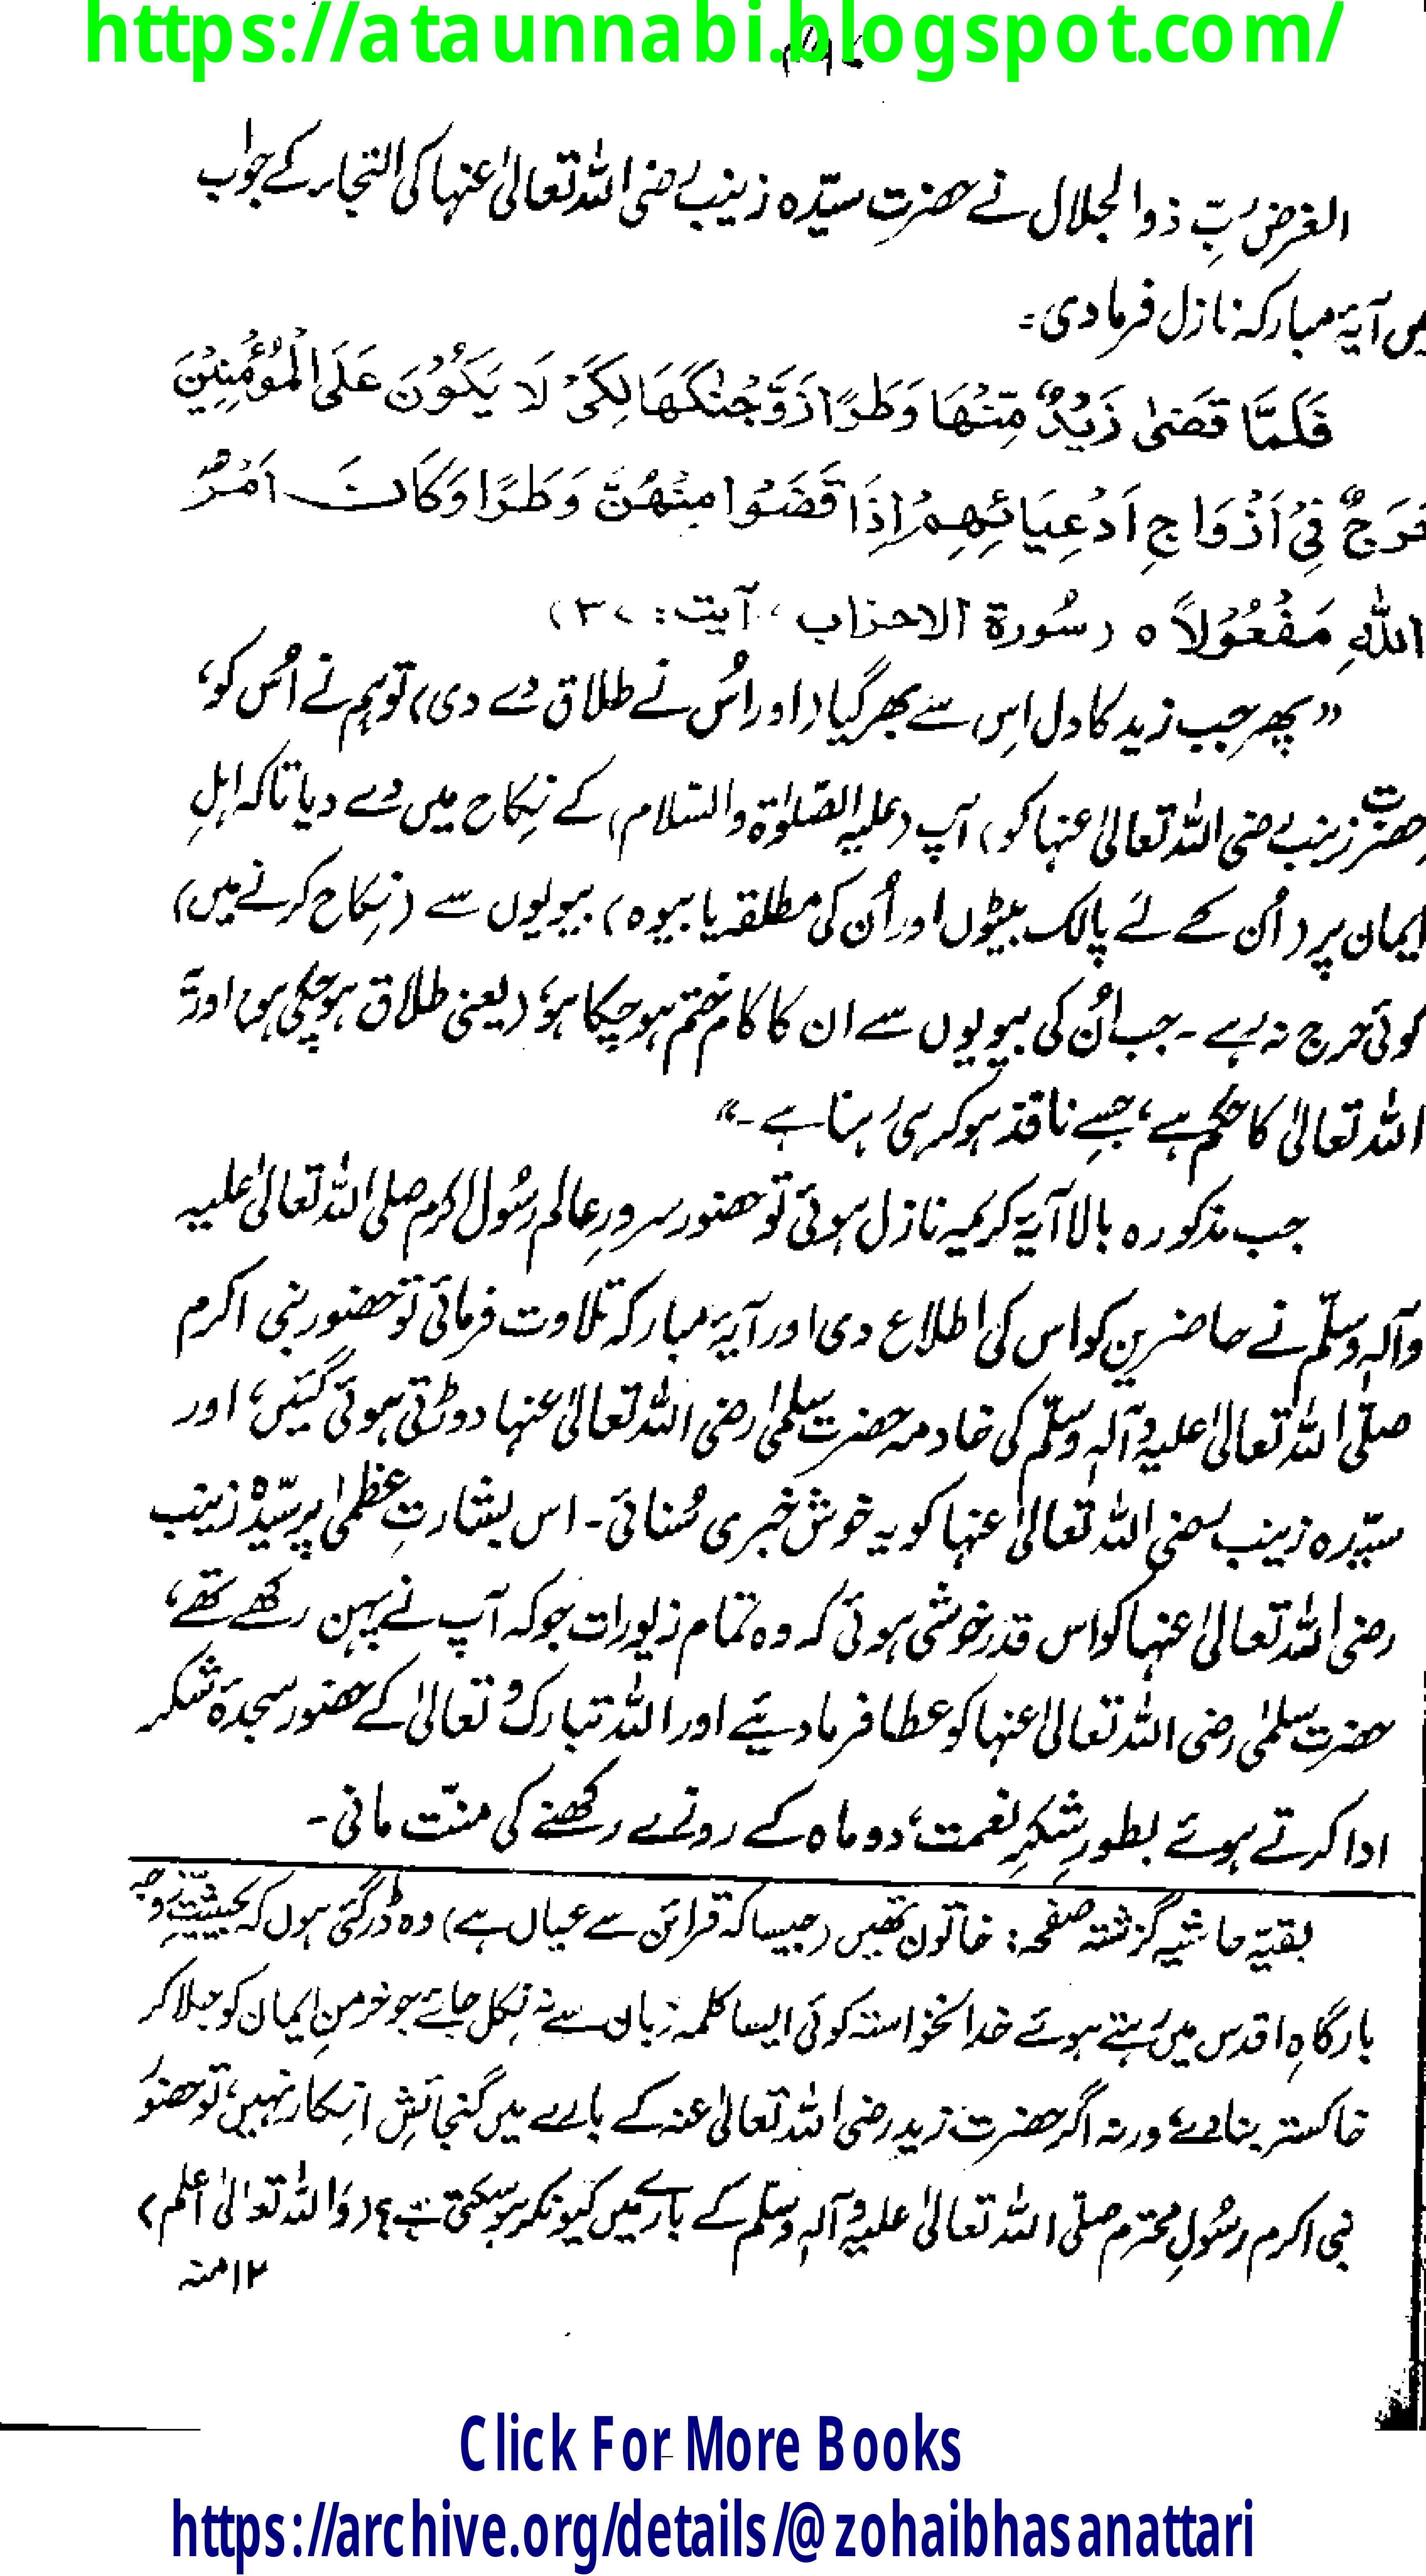 https://ataunnabi.blogspot.com/
الغرض ربِّ ذوالجلال نے حضرت سیّدہ زینب رضی اللہ تعالیٰ عنہا کی التجار کے جواب
میں آیۂ مبارکہ نازل فرما دی۔
فَلَمَّا قَضیٰ زَیْدٌ مِّنْهَا وَطَرًا زَوَّجْنٰکَهَا لِکَیْ لَا یَکُوْنَ عَلَی الْمُؤْمِنِیْنَ
حَرَجٌ فِیْ اَزْوَاجِ اَدْعِیَائِهِمْ اِذَا قَضَوْا مِنْهُنَّ وَطَرًا وَکَانَ اَمْرُ
اللّٰهِ مَفْعُوْلًا ہ (سُورۃ الاحزاب ، آیت : ۳۷)
”پھر جب زید کا دل اِس سے بھر گیا (اور اُس نے طلاق دے دی) تو ہم نے اُس کو،
(حضرت زینب رضی اللہ تعالیٰ عنہا کو) آپ (علیہ الصّلوٰۃ والسّلام) کے نِکاح میں دے دیا تاکہ اہلِ
ایمان پر (اُن کے لئے پالک بیٹوں اور اُن کی مطلقہ یا بیوہ) بیویوں سے (نِکاح کرنے میں)
کوئی حرج نہ رہے ۔ جب اُن کی بیویوں سے ان کا کام ختم ہو چکا ہو، (یعنی طلاق ہو چکی ہو) اور یہ
اللہ تعالیٰ کا حکم ہے، جِسے نافذ ہو کر ہی رہنا ہے۔“
جب مذکورہ بالا آیۂ کریمہ نازل ہوئی تو حضور سرورِ عالم رسُول اکرم صلی اللہ تعالیٰ علیہ
وآلہٖ وسلّم نے حاضرین کو اس کی اطلاع دی اور آیۂ مبارکہ تلاوت فرمائی تو حضور نبی اکرم
صلّی اللہ تعالیٰ علیہ وآلہٖ وسلّم کی خادمہ حضرت سلمیٰ رضی اللہ تعالیٰ عنہا دوڑتی ہوئی گئیں، اور
سیّدہ زینب رضی اللہ تعالیٰ عنہا کو یہ خوش خبری سُنائی۔ اس بشارتِ عظمیٰ پر سیّدہ زینب
رضی اللہ تعالیٰ عنہا کو اس قدر خوشی ہوئی کہ وہ تمام زیورات جو کہ آپ نے پہن رکھے تھے،
حضرت سلمیٰ رضی اللہ تعالیٰ عنہا کو عطا فرما دیئے اور اللہ تبارک و تعالیٰ کے حضور سجدۂ شکر
ادا کرتے ہوئے بطورِ شکرِ نعمت، دو ماہ کے روزے رکھنے کی منّت مانی۔
بقیّہ حاشیہ گزشتہ صفحہ: خاتون تھیں (جیسا کہ قرائن سے عیاں ہے) وہ ڈر گئی ہوں کہ بحیثیتِ زوجہ
بارگاہِ اقدس میں رہتے ہوئے خدانخواستہ کوئی ایسا کلمہ زبان سے نہ نِکل جائے جو خرمنِ ایمان کو جلا کر
خاکستر بنا دے، ورنہ اگر حضرت زید رضی اللہ تعالیٰ عنہ کے بارے میں گنجائشِ انِکار نہیں، تو حضور
نبی اکرم رسُولِ محترم صلّی اللہ تعالیٰ علیہ وآلہٖ وسلّم کے بارے میں کیونکر ہو سکتی ہے؟ (وَاللہ تعالیٰ اَعلم)
۱۲ منہ
Click For More Books
https://archive.org/details/@zohaibhasanattari